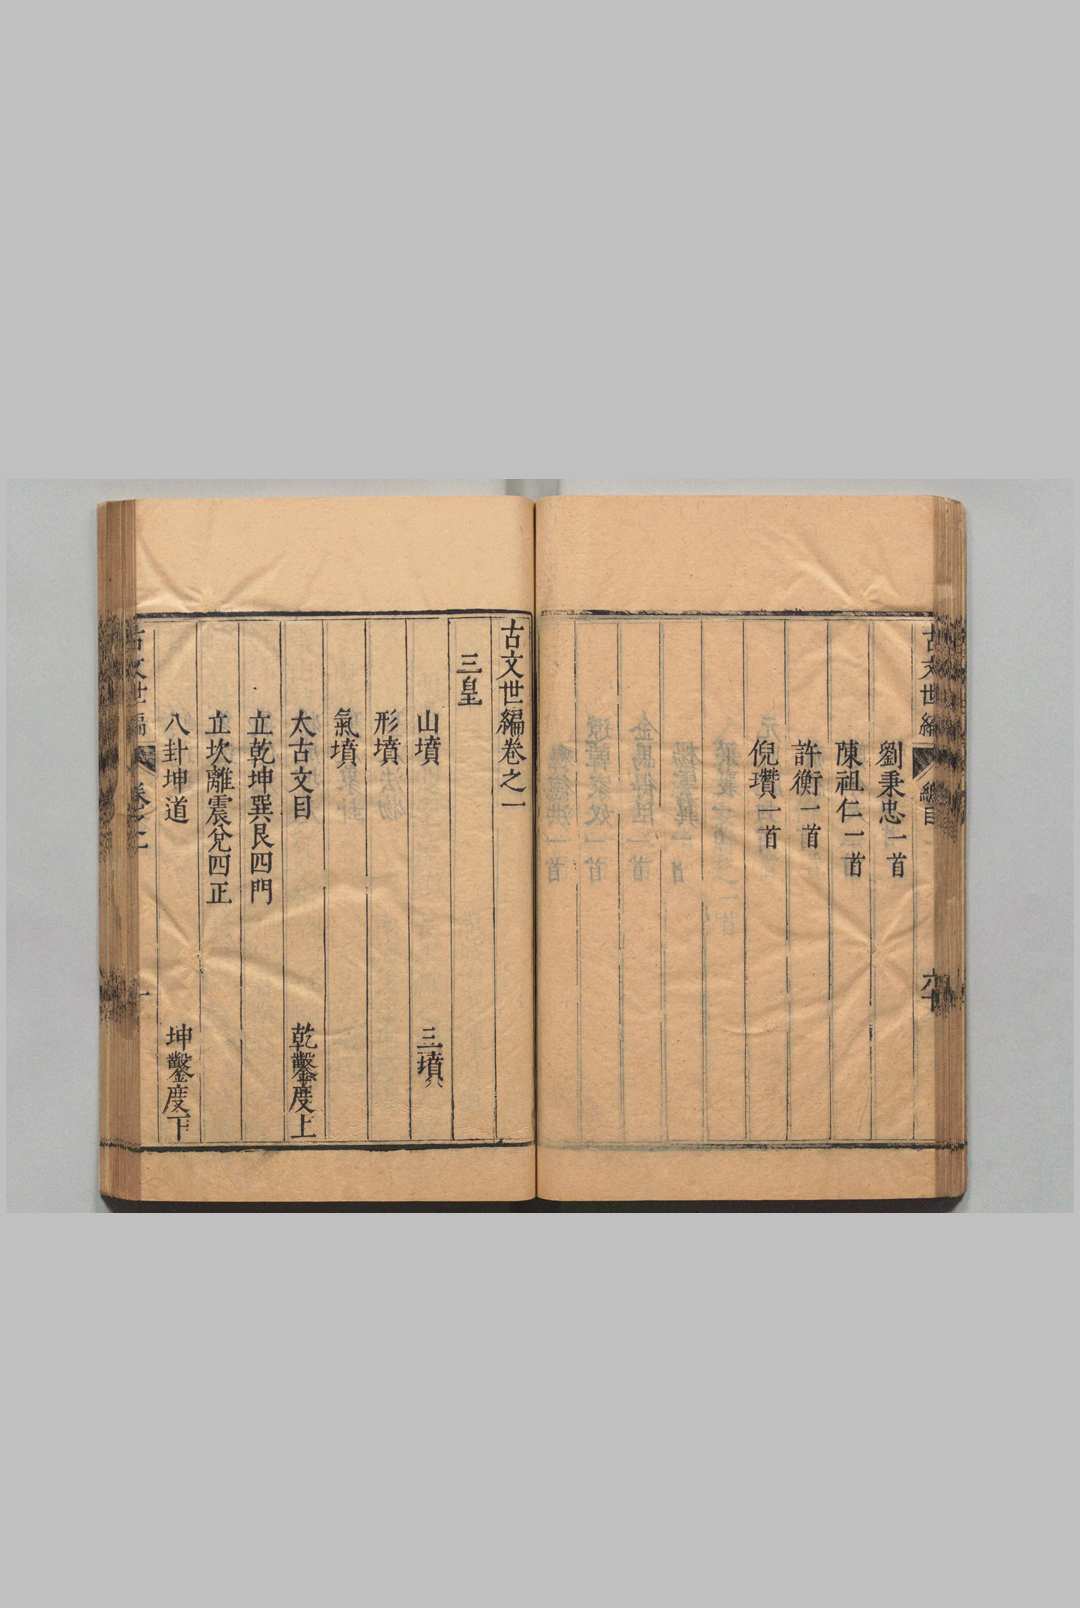 古文世編
總目
劉秉忠一首
陳祖仁一首
許衡一首
倪瓚一首
古文世編卷之一
三皇
山墳 三墳
形墳
氣墳
太古文目 乾鑿度上
立乾坤巽艮四門
立坎離震兌四正
八卦坤道 坤鑿度下
古文世編
卷之一
一